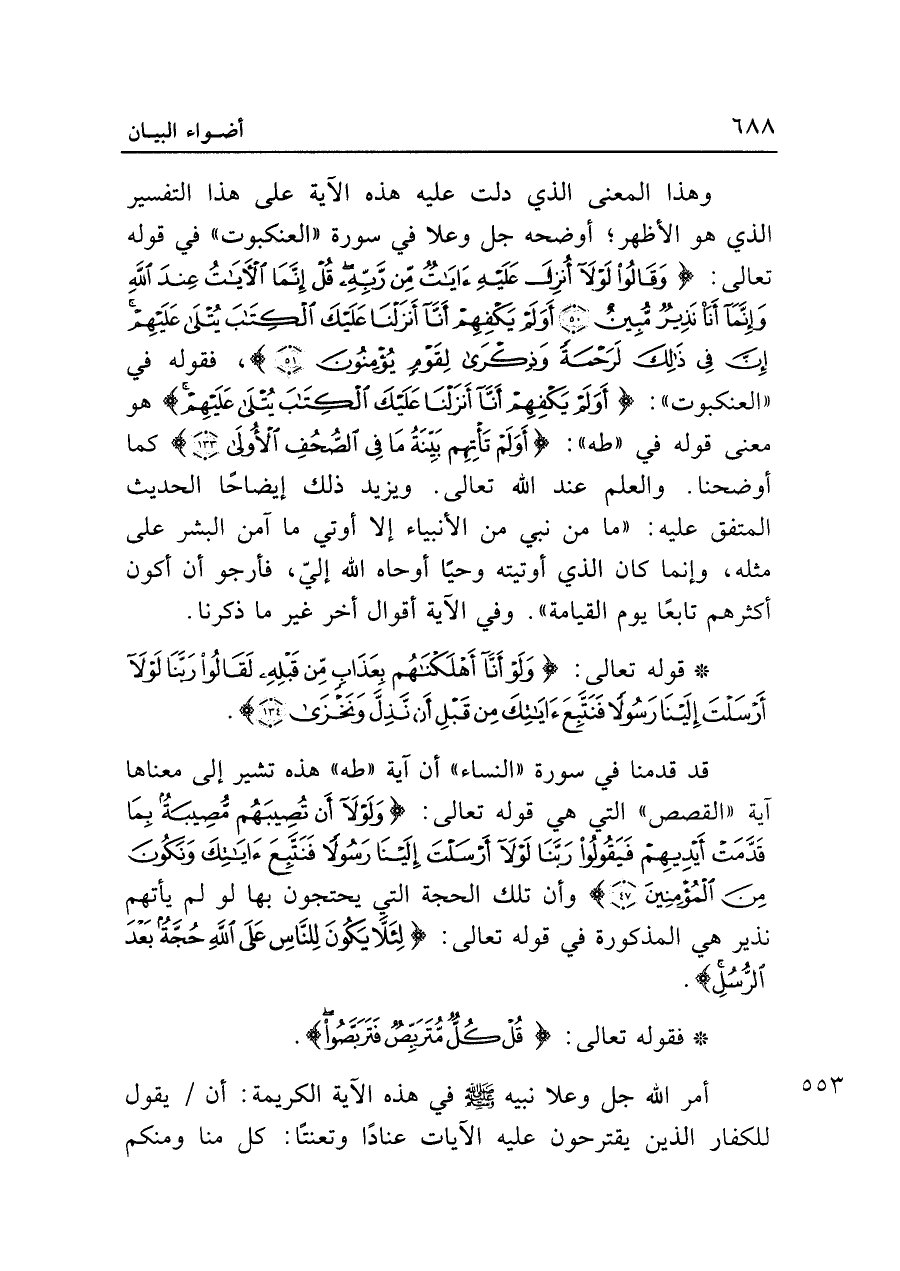 ٦٨٨ أضواء البيان
وهذا المعنى الذي دلت عليه هذه الآية على هذا التفسير
الذي هو الأظهر؛ أوضحه جل وعلا في سورة «العنكبوت» في قوله
تعالى: ﴿ وَقَالُواْ لَوْلَآ أُنزِلَ عَلَيْهِ ءَايَٰتٌ مِّن رَّبِّهِۦۖ قُلْ إِنَّمَا ٱلْأٓيَٰتُ عِندَ ٱللَّهِ
وَإِنَّمَآ أَنَا۠ نَذِيرٌ مُّبِينٌ ﴿٥٠﴾ أَوَلَمْ يَكْفِهِمْ أَنَّآ أَنزَلْنَا عَلَيْكَ ٱلْكِتَٰبَ يُتْلَىٰ عَلَيْهِمْۚ
إِنَّ فِى ذَٰلِكَ لَرَحْمَةً وَذِكْرَىٰ لِقَوْمٍ يُؤْمِنُونَ ﴿٥١﴾ ﴾، فقوله في
«العنكبوت»: ﴿ أَوَلَمْ يَكْفِهِمْ أَنَّآ أَنزَلْنَا عَلَيْكَ ٱلْكِتَٰبَ يُتْلَىٰ عَلَيْهِمْۚ ﴾ هو
معنى قوله في «طه»: ﴿ أَوَلَمْ تَأْتِهِم بَيِّنَةُ مَا فِى ٱلصُّحُفِ ٱلْأُولَىٰ ﴿١٣٣﴾ ﴾ كما
أوضحنا. والعلم عند الله تعالى. ويزيد ذلك إيضاحًا الحديث
المتفق عليه: «ما من نبي من الأنبياء إلا أوتي ما آمن البشر على
مثله، وإنما كان الذي أوتيته وحيًا أوحاه الله إليّ، فأرجو أن أكون
أكثرهم تابعًا يوم القيامة». وفي الآية أقوال أخر غير ما ذكرنا.
* قوله تعالى: ﴿ وَلَوْ أَنَّآ أَهْلَكْنَٰهُم بِعَذَابٍ مِّن قَبْلِهِۦ لَقَالُواْ رَبَّنَا لَوْلَآ
أَرْسَلْتَ إِلَيْنَا رَسُولًا فَنَتَّبِعَ ءَايَٰتِكَ مِن قَبْلِ أَن نَّذِلَّ وَنَخْزَىٰ ﴿١٣٤﴾ ﴾.
قد قدمنا في سورة «النساء» أن آية «طه» هذه تشير إلى معناها
آية «القصص» التي هي قوله تعالى: ﴿ وَلَوْلَآ أَن تُصِيبَهُم مُّصِيبَةٌۢ بِمَا
قَدَّمَتْ أَيْدِيهِمْ فَيَقُولُواْ رَبَّنَا لَوْلَآ أَرْسَلْتَ إِلَيْنَا رَسُولًا فَنَتَّبِعَ ءَايَٰتِكَ وَنَكُونَ
مِنَ ٱلْمُؤْمِنِينَ ﴿٤٧﴾ ﴾ وأن تلك الحجة التي يحتجون بها لو لم يأتهم
نذير هي المذكورة في قوله تعالى: ﴿ لِئَلَّا يَكُونَ لِلنَّاسِ عَلَى ٱللَّهِ حُجَّةٌۢ بَعْدَ
ٱلرُّسُلِۚ ﴾.
* فقوله تعالى: ﴿ قُلْ كُلٌّ مُّتَرَبِّصٌ فَتَرَبَّصُواْۖ ﴾.
أمر الله جل وعلا نبيه ﷺ في هذه الآية الكريمة: أن / يقول ٥٥٣
للكفار الذين يقترحون عليه الآيات عنادًا وتعنتًا: كل منا ومنكم